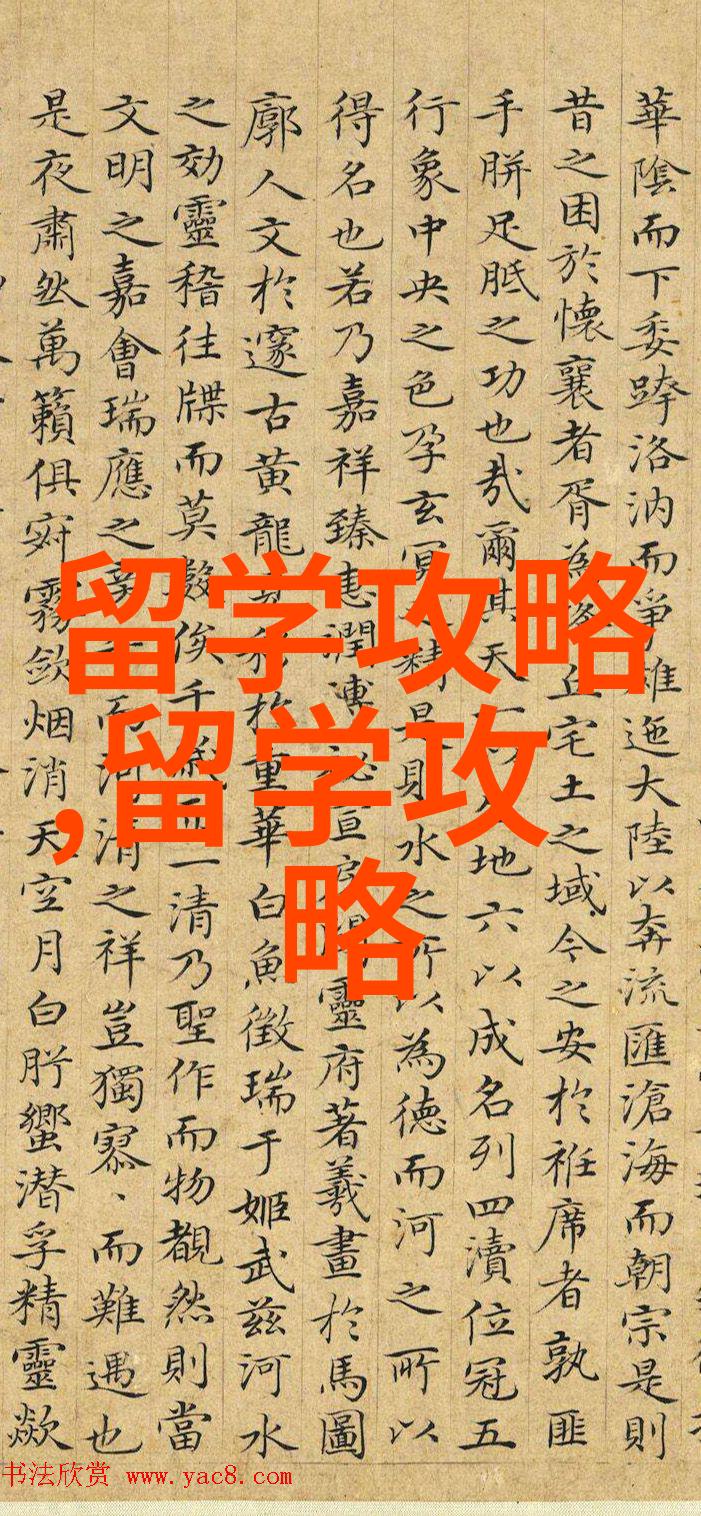 華陰而下委跨洛汭而爭雄迤大陸以奔流匯滄海而朝宗是則
昔之困於懷襄者胥為降丘宅土之域今之安於袵席者孰匪
手胼足胝之功也哉爾其天一以生地六以成名列四瀆位冠五
行象中央之色孕玄冥之精是則水之所以為德而河之所以
得名也若乃嘉祥臻惠潤溥宣靈府著羲畫於馬圖
廓人文於邃古黃龍於重華白魚徵瑞于姬武茲河水
之効靈稽往牒而莫數俟千歲而一清乃聖作而物覩然則當
文明之嘉會瑞應之而河清之祥豈獨寡、而難遇也
是夜肅然萬籟俱寂霧斂烟消天空月白肸蠁潜孚精靈歘
留学攻略
,留学攻
略
书法欣赏 www.yac8.com